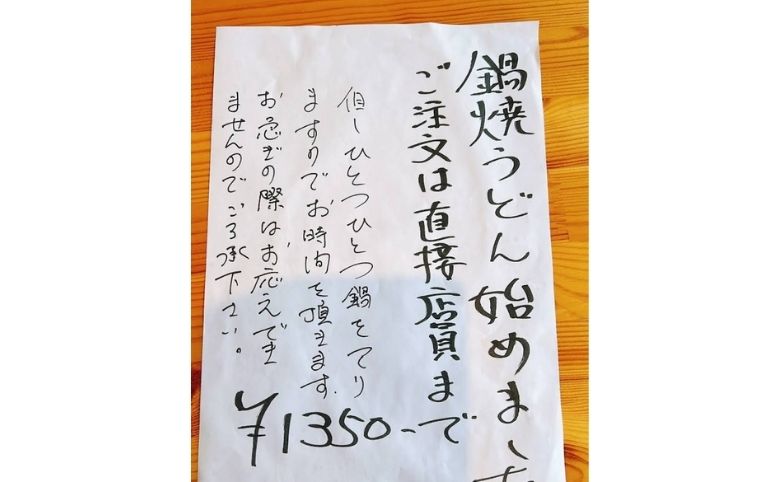 鍋焼うどん始めまし
ご注文は直接店員まで
但しひとつひとつ鍋を
ますのでお時間を頂きます.
お急ぎの際はお応えでき
ませんのでご了承下さい。
¥1350-